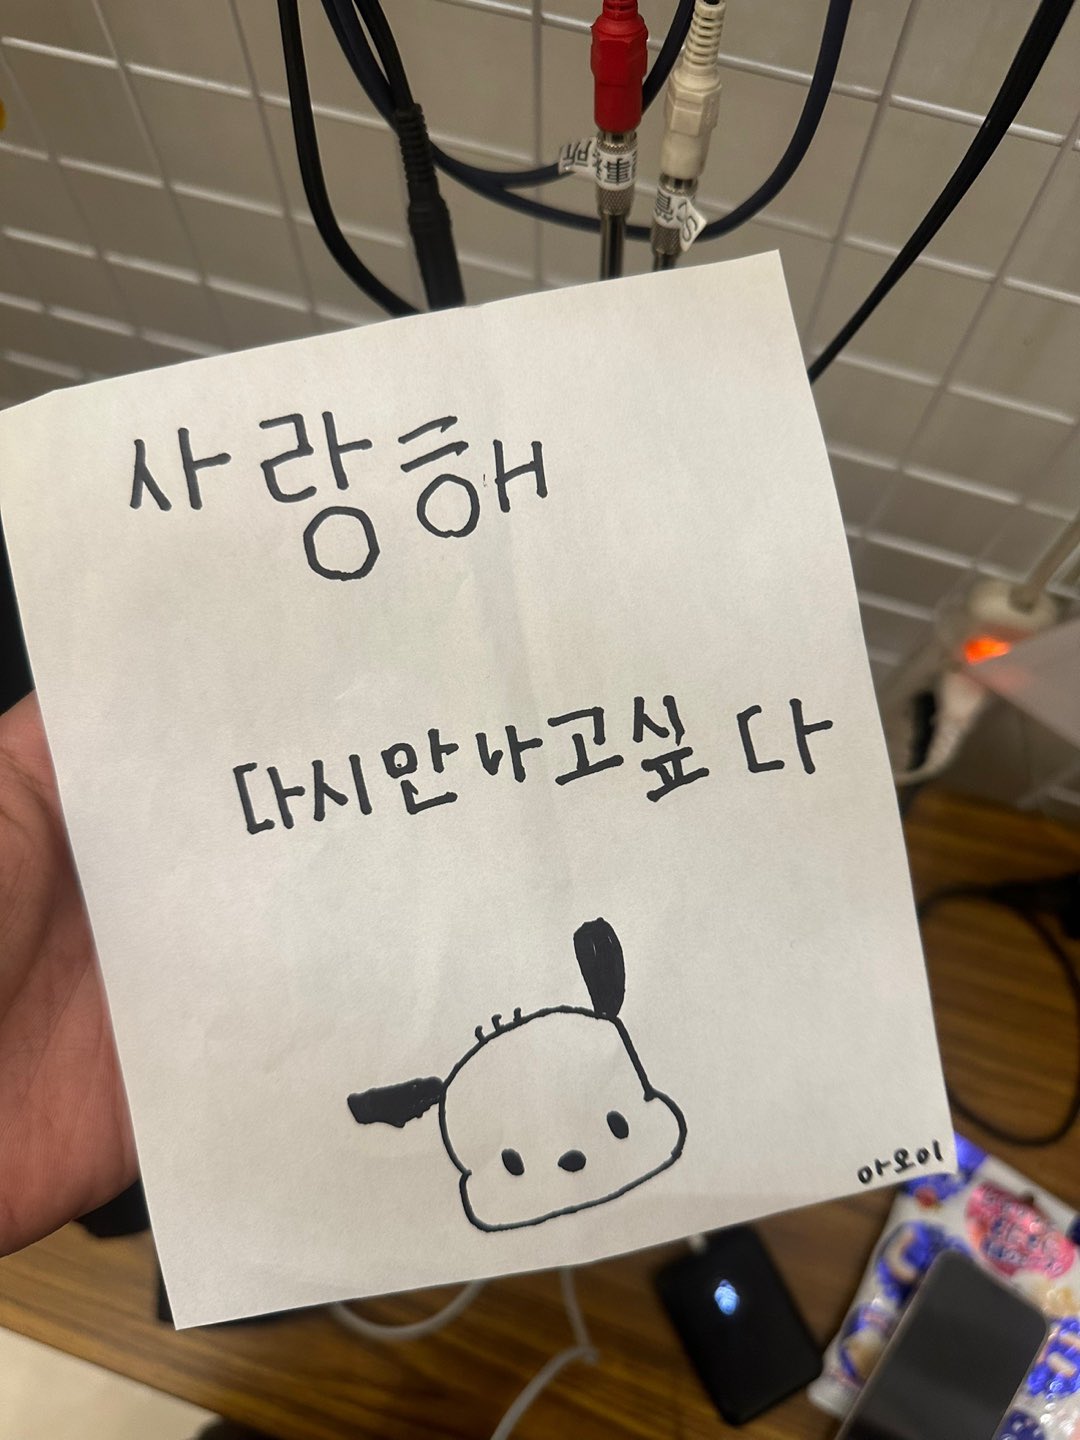 사랑해
다시안나고싶다
아오이